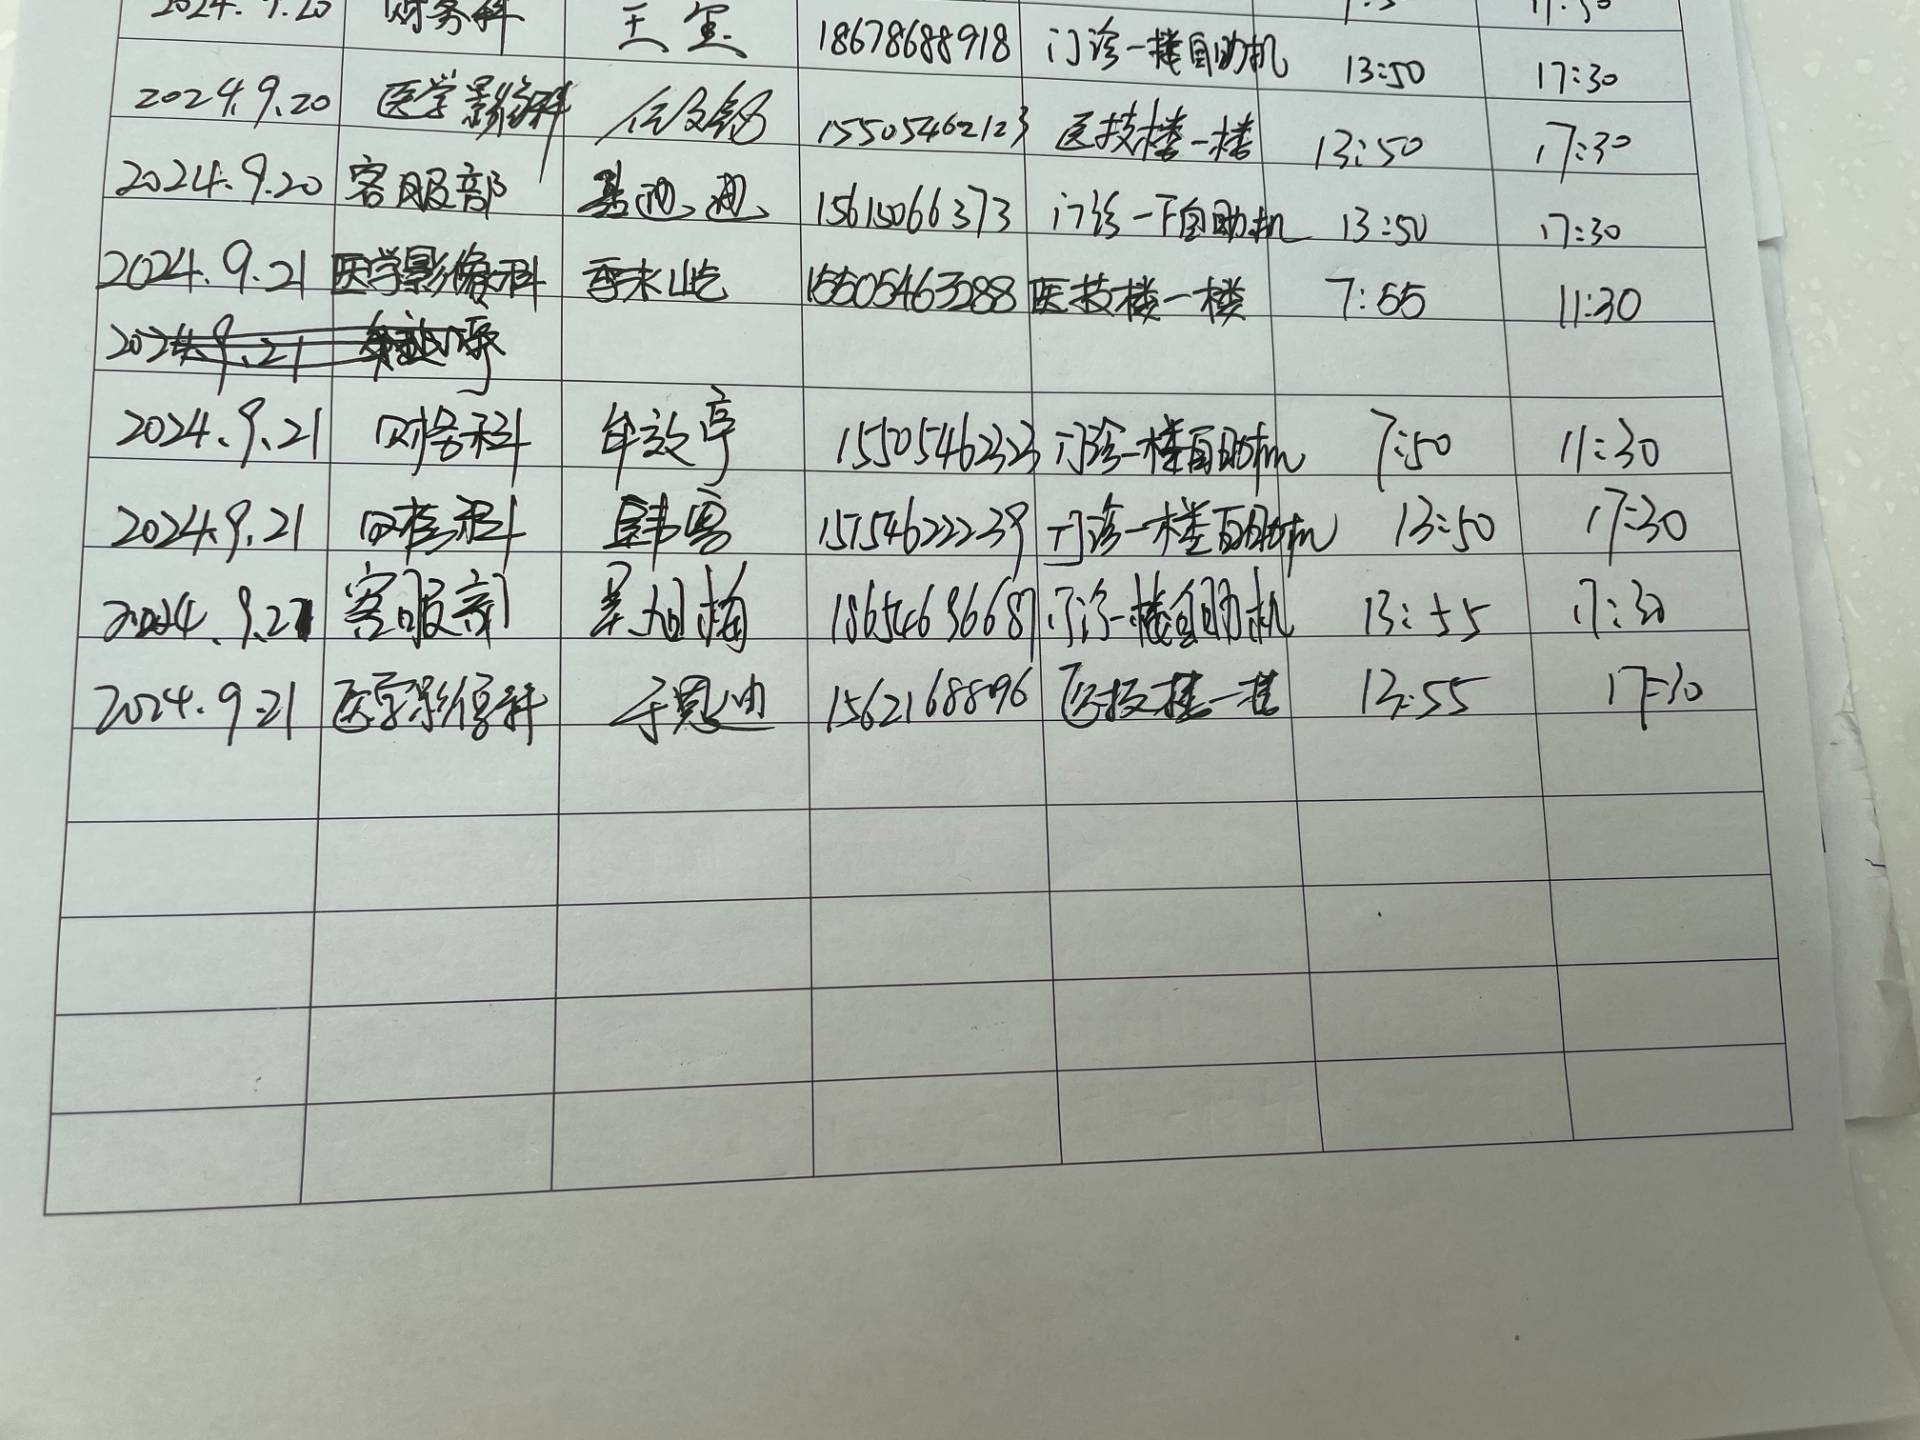 2024.9.20 财务科 18678688918 门诊一楼自助机 13:50 17:30
2024.9.20 医学影像科 15505462123 医技楼一楼 13:50 17:30
2024.9.20 客服部 15615066373 门诊一下自助机 13:50 17:30
2024.9.21 医学影像科 季未屹 15505463288 医技楼一楼 7:55 11:30
2024.9.21
2024.9.21 财务科 牟效亭 15505462323 门诊一楼自助机 7:50 11:30
2024.9.21 财务科 韩 15154622239 门诊一楼自助机 13:50 17:30
2024.9.21 客服部 18654696687 门诊一楼自助机 13:55 17:30
2024.9.21 医学影像科 于恩迪 15621688896 医技楼一楼 13:55 17:30